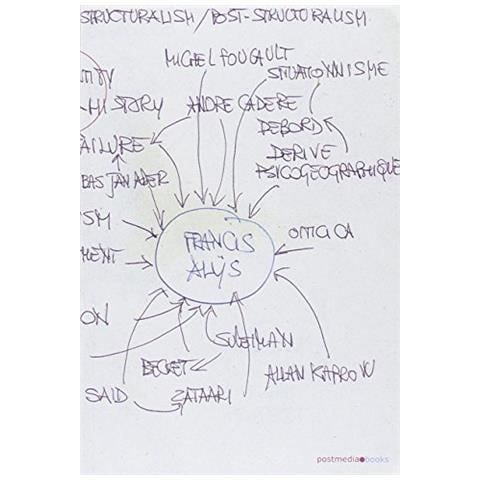 STRUCTURALISM / POST-STRUCTURALISM
MICHEL FOUCAULT
SITUATIONNISME
HISTORY
ANDRE CADERE
DEBORD
AILURE
DERIVE
PSICOGEOGRAPHIQUE
BAS JAN ADER
SM
FRANCIS
ALŸS
OITICICA
MENT
ON
SULEIMAN
BECKET
ALLAN KAPROW
SAID
ZATAARI
postmedia books